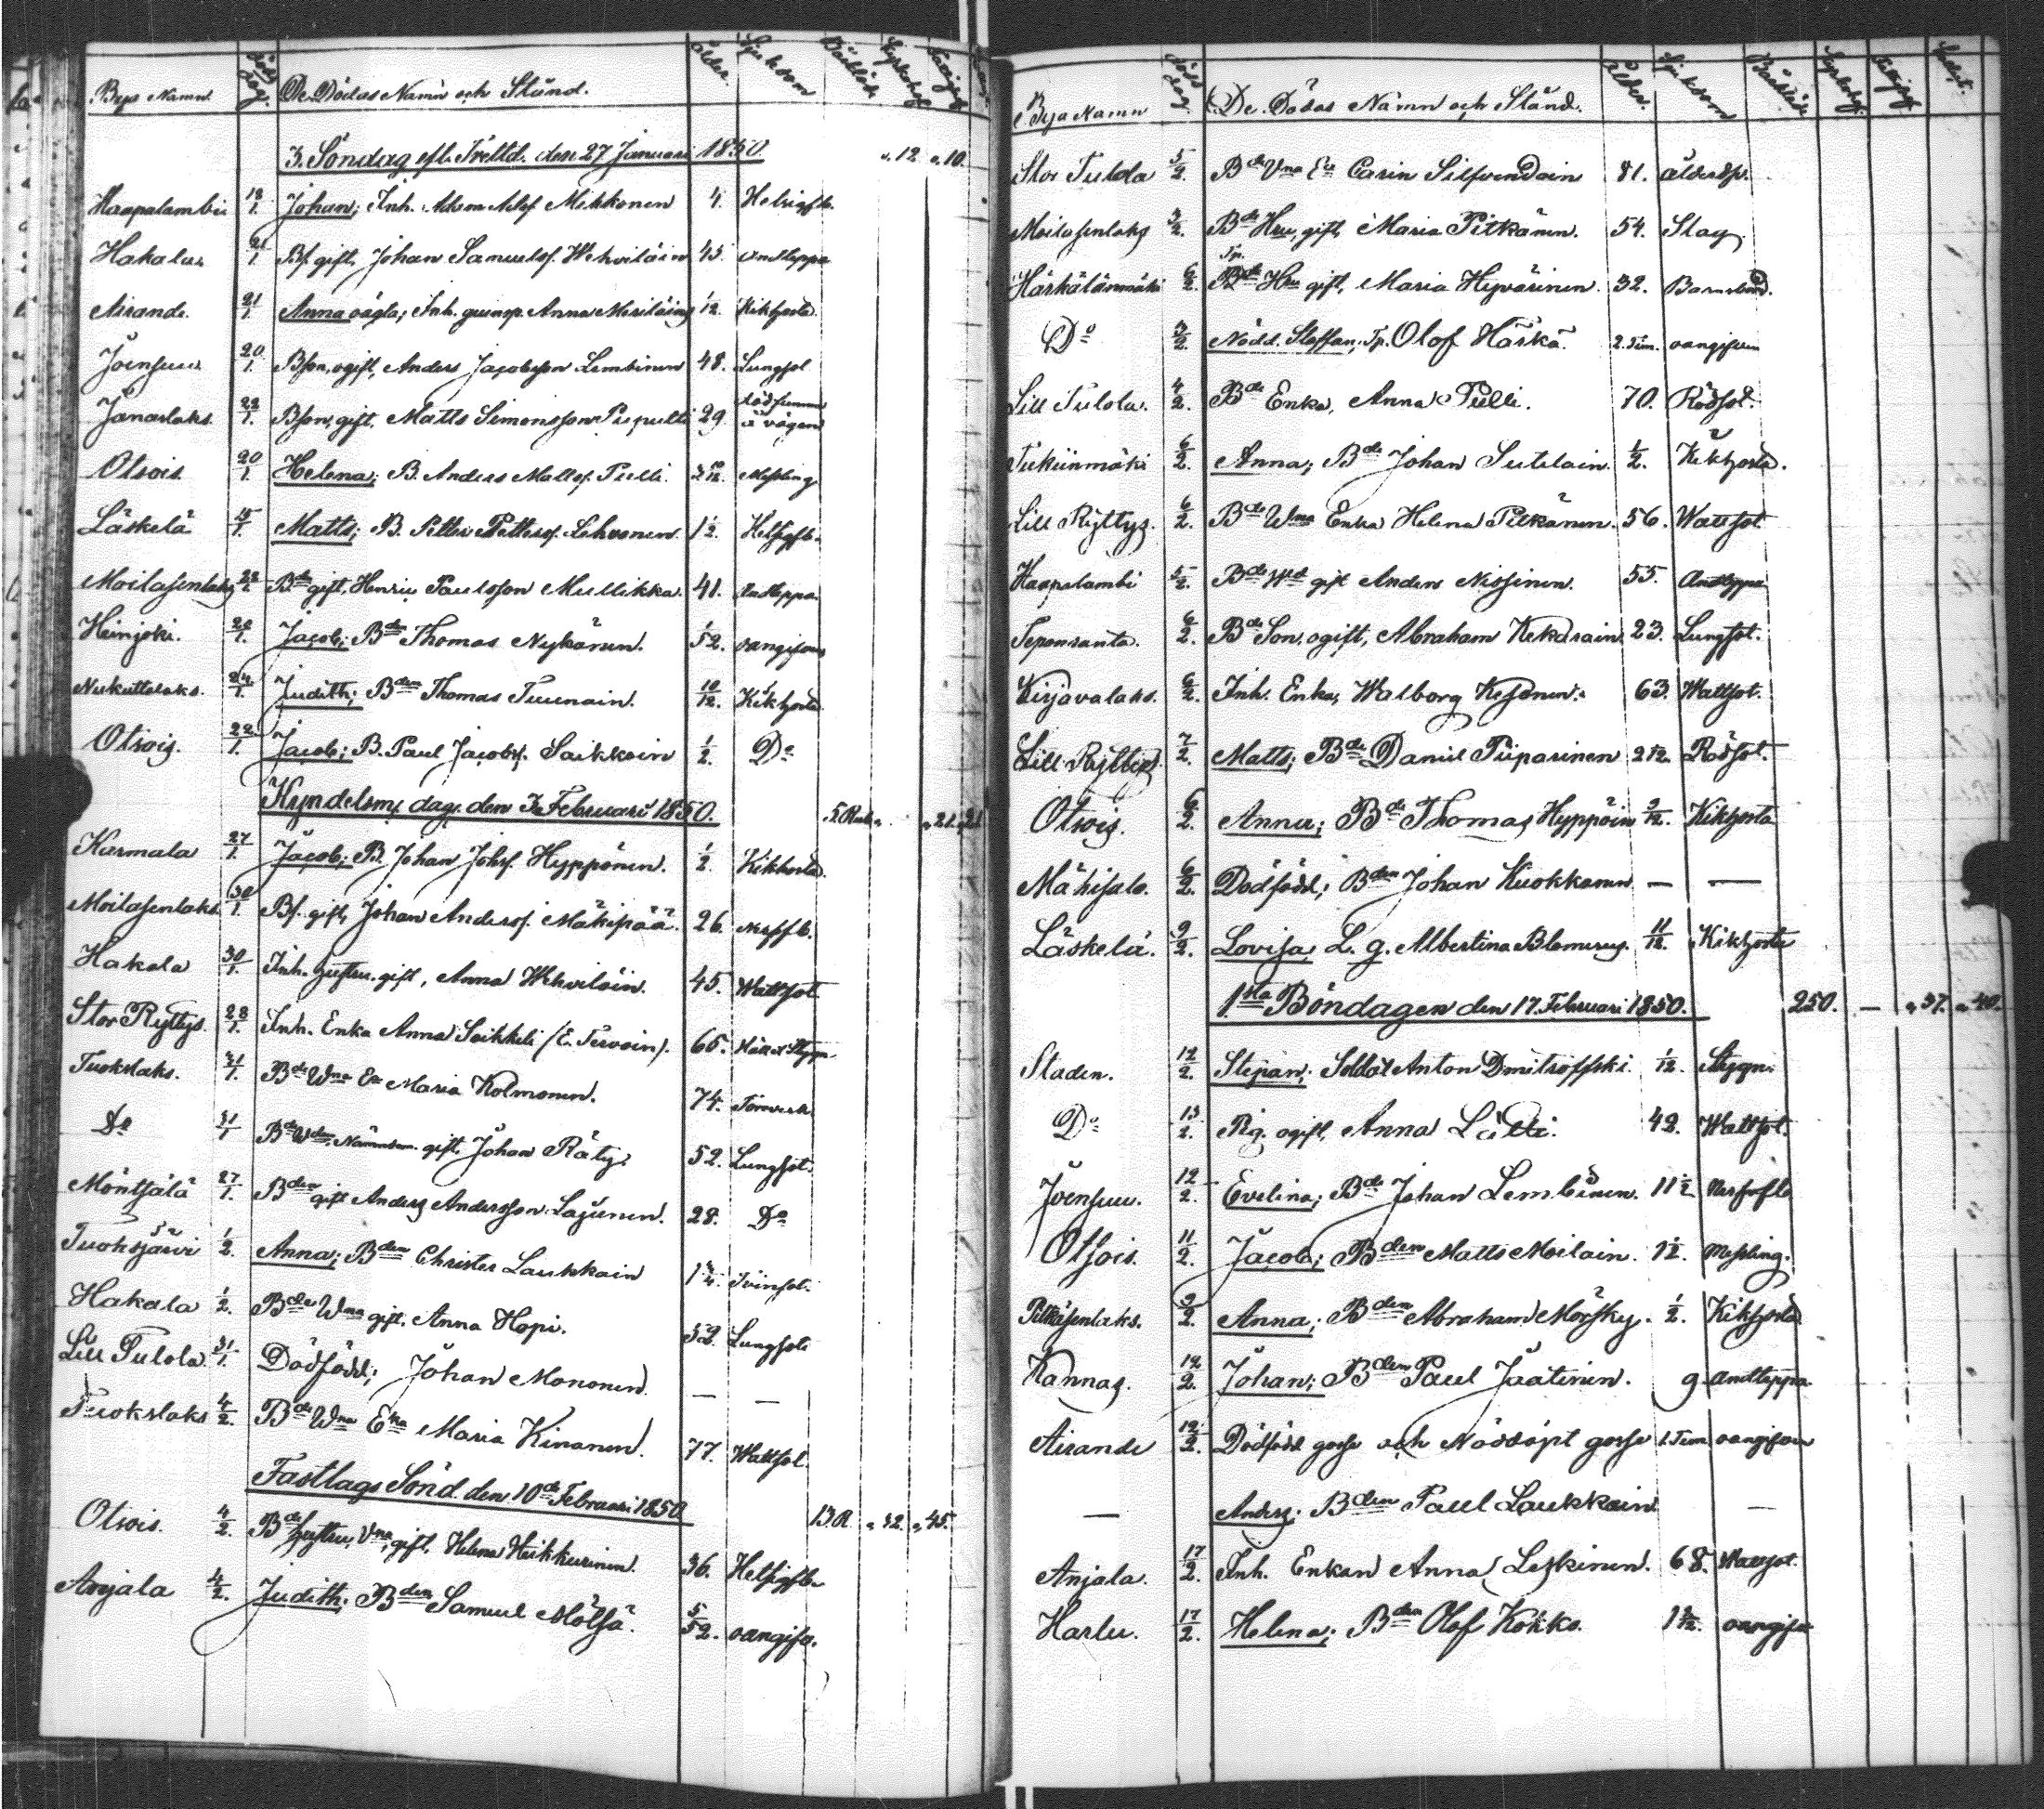 Bya Namn. Döds dag. De Dödas Namn och Stånd. Ålder. Sjukdom
3. Söndag eft. Trettd. den 27 Januari 1850. 12 10.
Haapalambi 18/1. Johan; Inh. Adam Adsf. Mikkonen 4. Helsigfb.
Hakala 21/1 Bf. gift, Johan Samuelsf. Wehviläin 45. Andteppa
Airande. 21/1 Anna oägta; Inh. qvinsp. Anna Meriläin 1/12. Kikhosta
Joensuu 20/1. Bson, ogift, Anders Jacobsson Lembinen 48. Lungsot
Janaslaks. 22/1. Bson, gift, Matts Simonsson Piipulti 29. död funnen å vägen
Otsois. 20/1. Helena; B. Anders Mattsf. Pulli. 2 10/12. Messling
Läskelä 15/1. Matts; B. Petter Pettersf. Lehvonen 1 1/2. Helsigfb.
Moilasenlaks Bde gift, Henric Paulsson Mullikka. 41. Andteppa.
Heinjoki. Jacob; Bden Thomas Nykänen. 1/52. oangifven
Nukuttalaks. 24/1. Judith; Bden Thomas Tuunain. 10/12. Kikhosta
Otsois. 22/1. Jacob; B. Paul Jacobsf. Saikkoin 1/2. Do
Kyndelsm. dag. den Februari 1850. 5 Rub. 21. 21
Karmala 27/1. Jacob; B. Johan Johsf. Hyppönen. 1/2. Kikhosta.
Moilasenlaks. 30/1. Bf. gift, Johan Andersf. Mäkipää. 26. Nerffb.
Hakala 30/1. Inh. hustru. gift, Anna Wehviläin. 45. Wattsot
Stor Ryttys. 28/1. Inh. Enka Anna Soikkeli (E. Tervoin). 65. Håll o Stygn
Tuokslaks. 31/1. Bde Wna Ea Maria Kolmonen. 74. Torrverk
Do 31/1 Bde Wden Nämndem. gift, Johan Räty. 52. Lungsot.
Möntsälä 27/1. Bden gift Anders Andersson Lajunen. 28. Do
Tuoksjärvi 1/2. Anna; Bden Christer Laukkain 1 3/4. Tvinsot.
Hakala 1/2. Bde Wna gift. Anna Hopi. 32. Lungsot
Lill Tulola 31/1. Dödfödd; Johan Mononen. — —
Tuokslaks 4/2. Bde Wna Eka Maria Kinanen. 77. Wattsot.
Fastlags Sönd. den 10de Februari 1850. 13 R. 32. 45.
Otsois. 4/2. Bde hustru, Wna, gift, Helena Heikkurinen. 36. Helsigfb
Anjala 4/2. Judith; Bden Samuel Mölsä. 5/52. oangifv.
Bya Namn Döds dag. De Dödas Namn och Stånd. Ålder. Sjukdom
Stor Tulola 5/2. Bde Vna Ea Carin Silfvendoin 81. ålderdsv.
Moilasenlaks 3/2. Bde Hru, gift, Maria Pitkänen. 54. Slag.
Härkälänmäki 6/2. Tp. Hru gift, Maria Hyvärinen. 32. Barnsbörd.
Do 3/2. Nödd. Staffan; Tp. Olof Härkä. 2 tim. oangifven
Lill Tulola. 4/2. Bde Enka, Anna Pulli. 70. Rödsot.
Tukiinmäki 6/2. Anna; Bde Johan Sutelain. 1/2. Kikhosta.
Lill Ryttys. 6/2. Bde Wna Enka Helena Pitkänen. 56. Wattsot
Haapalambi 5/2. Bde Wd gift Anders Nissinen. 55. Andteppa
Teponranta. 6/2. Bde Son, ogift, Abraham Kekarain 23. Lungsot.
Kirjavalaks. 6/2. Inh. Enka, Walborg Kesonen. 63. Wattsot.
Lill Ryttys 7/2. Matts; Bde Daniel Piiparinen 2 /12. Rödsot.
Otsois. 6/2. Anna; Bde Thomas Hyppöin /12. Kikhosta
Mähisalo. 6/2. Dödfödd; Bden Johan Kuokkanen — —
Läskelä. 9/2. Lovisa, L. g. Albertina Blomerus. 11/12. Kikhosta
1sta Böndagen den 17. Februari 1850. 250. — 37. 40.
Staden. 12/2. Stepan; Soldat Anton Dmitroffski. 1/12. Stygn.
Do 13/2. Pig. ogift, Anna Lätti. 42. Wattsot.
Joensuu. 12/2. Evelina; Bde Johan Lembinen. 11 1/2 Nerffb
Otsois. 11/2. Jacob; Bden Matts Moilain. 1 1/2. Messling.
Pitkäsenlaks. 9/2. Anna; Bden Abraham Mörsky. 1/2. Kikhosta
Kannas. 12/2. Johan; Bden Paul Jaatinen. 9. Andteppa
Airande 12/2. Dödfödd gosse och Nöddöpt gosse 1 Tim oangifven
— Anders; Bden Paul Laukkain. —
Anjala. 17/2. Inh. Enkan Anna Leskinen. 68. Wattsot.
Harlu. 17/2. Helena; Bden Olof Kokko. 1 /12. oangifven